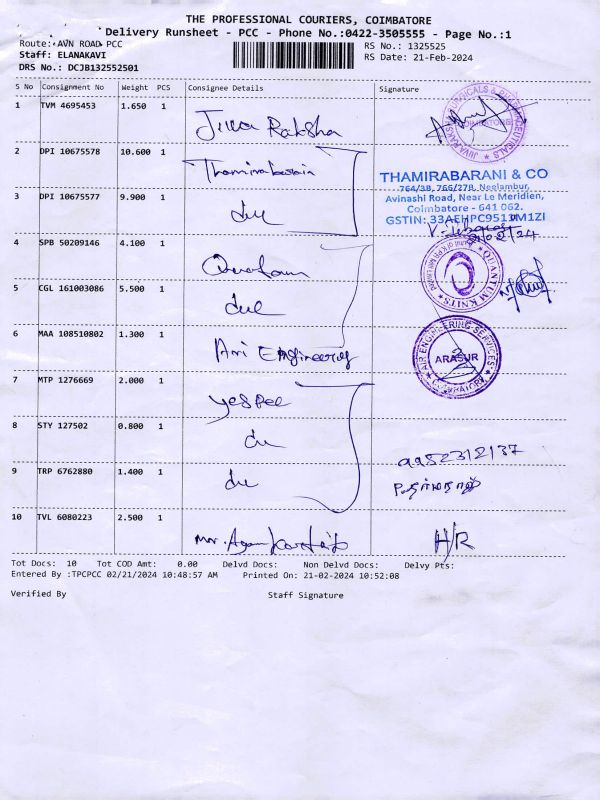 THE PROFESSIONAL COURIERS, COIMBATORE
Delivery Runsheet - PCC - Phone No.:0422-3505555 - Page No.:1
Route: AVN ROAD PCC
RS No.: 1325525
Staff: ELANAKAVI
RS Date: 21-Feb-2024
DRS No.: DCJB132552501
S No Consignment No Weight PCS Consignee Details Signature
1 TVM 4695453 1.650 1 Jiva Raksha
2 DPI 10675578 10.600 1
THAMIRABARANI & CO
764/3B, 766/27B, Neelambur,
Avinashi Road, Near Le Meridien,
Coimbatore - 641 062.
GSTIN: 33AEHPC9513M1ZI
3 DPI 10675577 9.900 1
21/02/24
4 SPB 50209146 4.100 1
QUANTUM KNITS
5 CGL 161003086 5.500 1
6 MAA 108510802 1.300 1 Ami Engineering
AIR ENGINEERING SERVICES
ARASUR
COIMBATORE
7 MTP 1276669 2.000 1 yespee
8 STY 127502 0.800 1
9 TRP 6762880 1.400 1
9952312137
10 TVL 6080223 2.500 1 Mr.
H/R
Tot Docs: 10 Tot COD Amt: 0.00 Delvd Docs: Non Delvd Docs: Delvy Pts:
Entered By :TPCPCC 02/21/2024 10:48:57 AM Printed On: 21-02-2024 10:52:08
Verified By Staff Signature